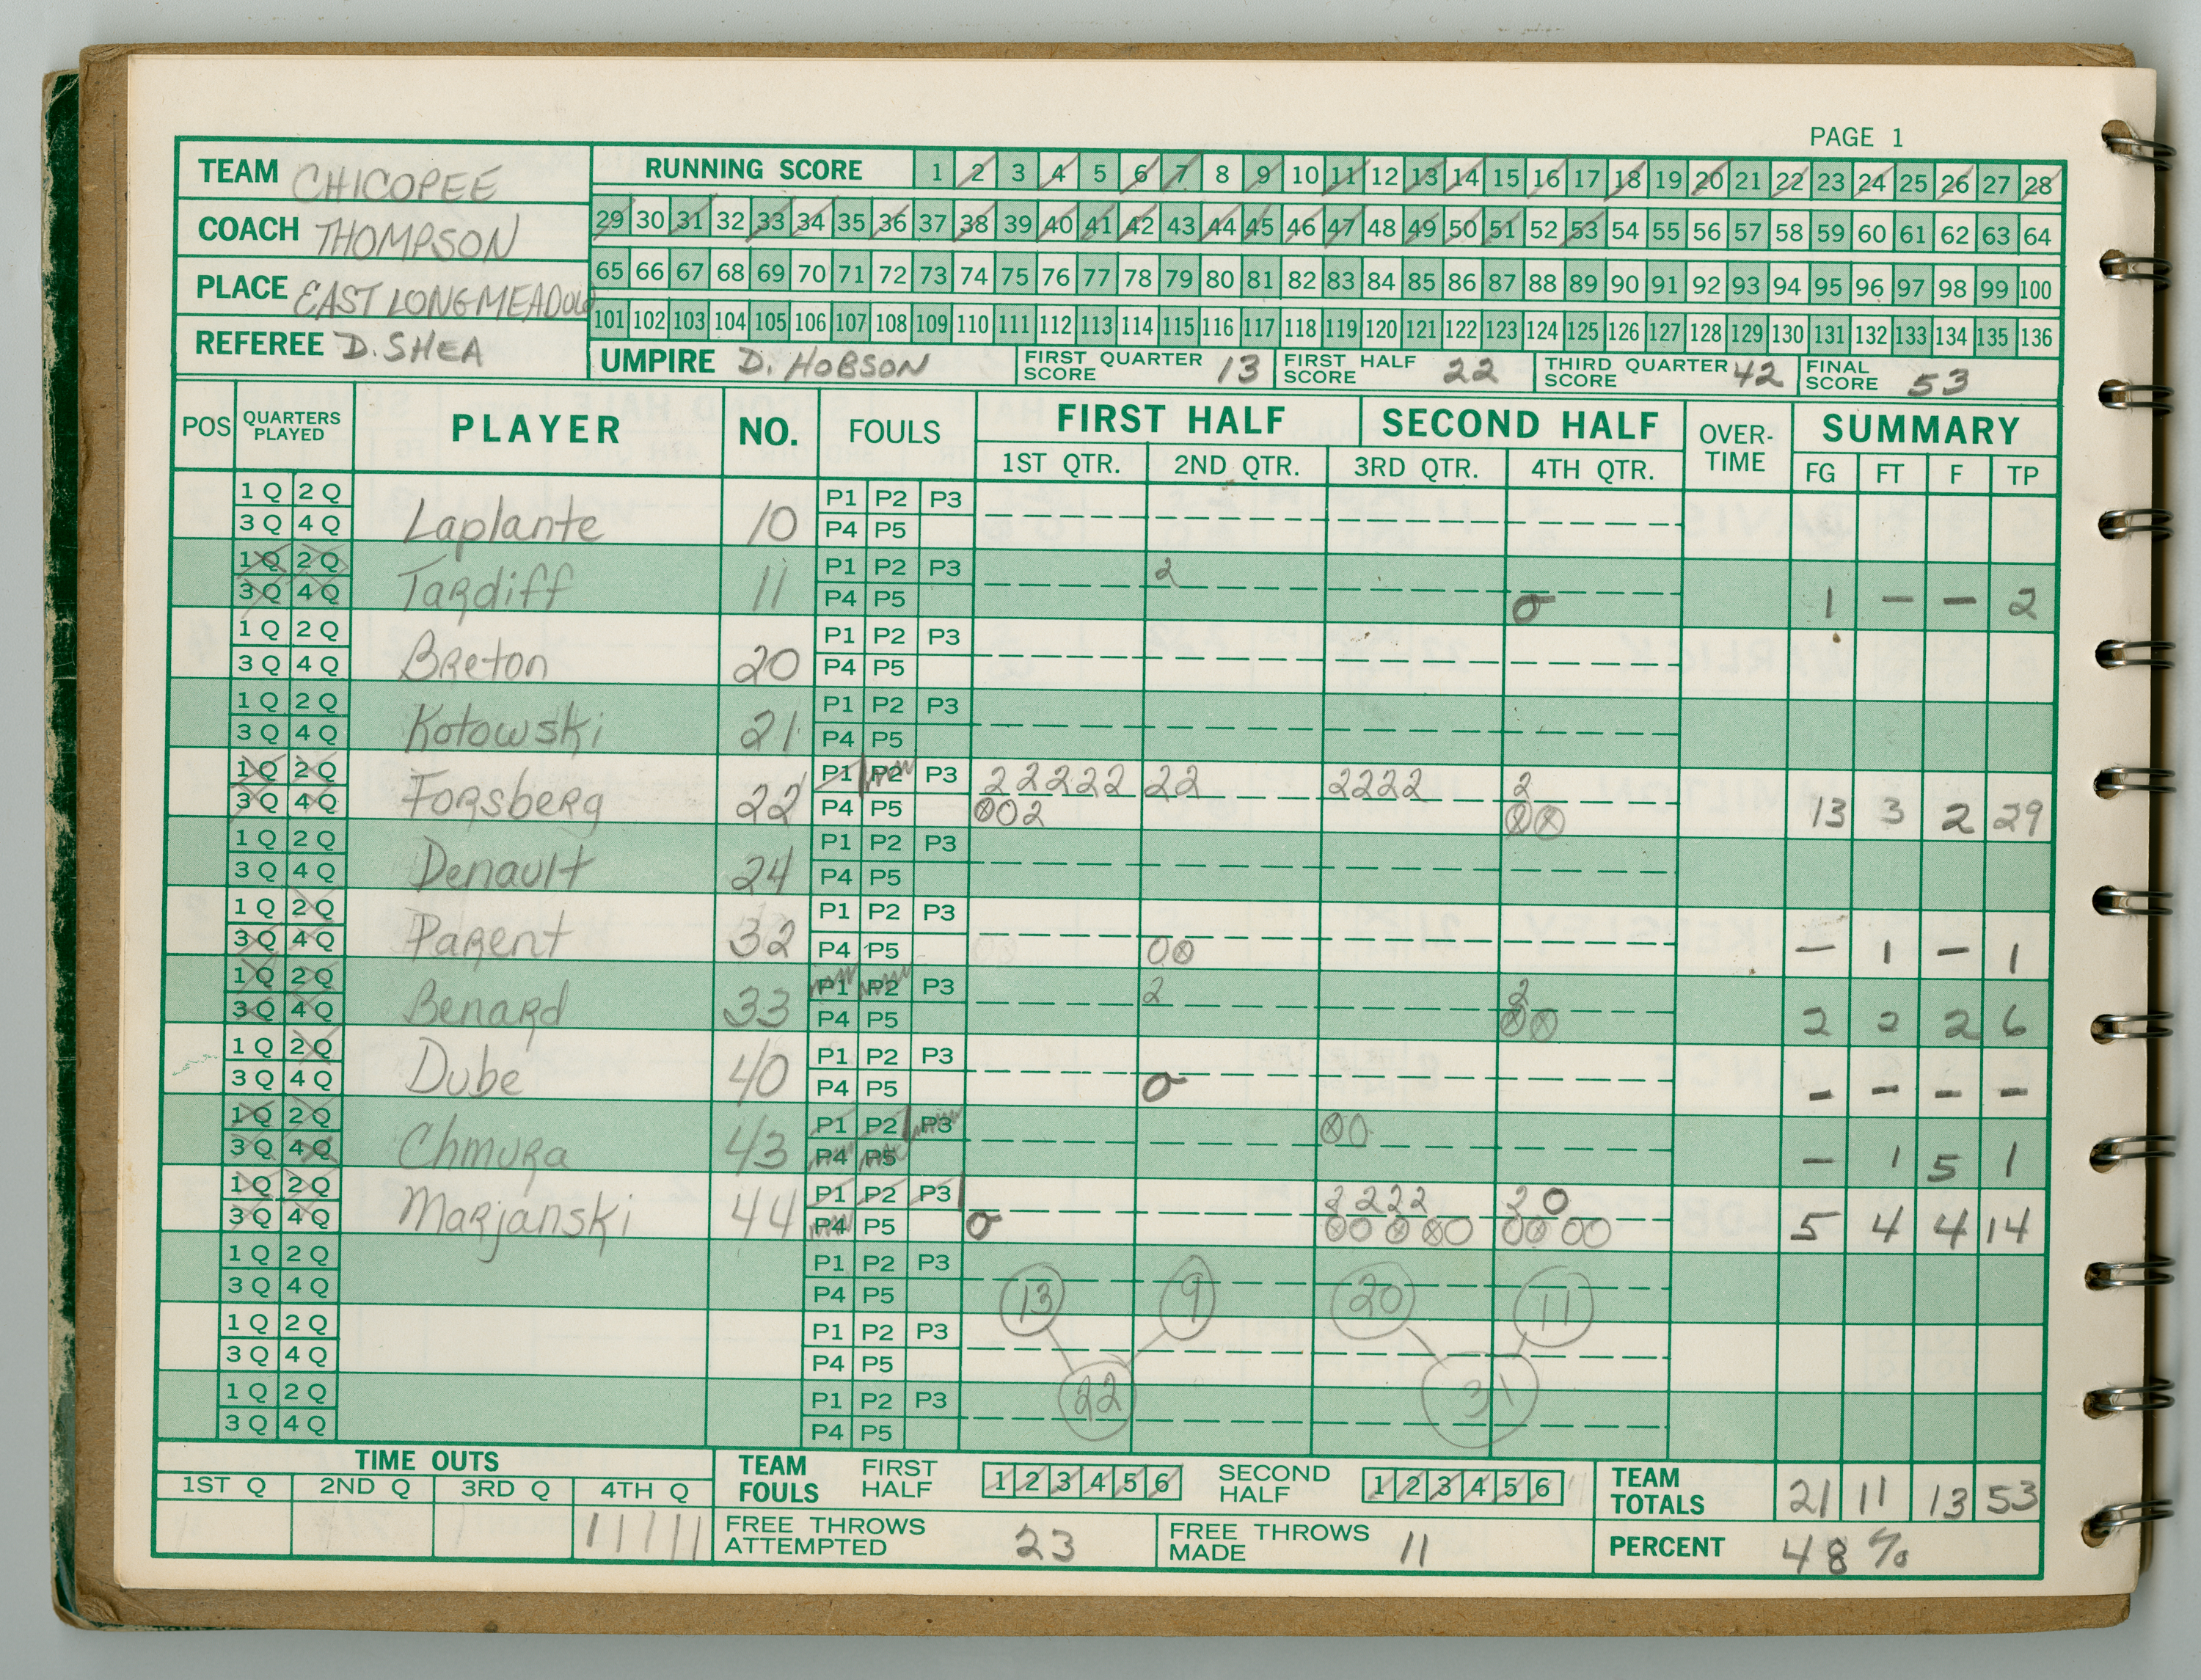 PAGE 1
TEAM CHICOPEE
COACH THOMPSON
PLACE EAST LONGMEADOW
REFEREE D. SHEA
RUNNING SCORE 1 2 3 4 5 6 7 8 9 10 11 12 13 14 15 16 17 18 19 20 21 22 23 24 25 26 27 28
29 30 31 32 33 34 35 36 37 38 39 40 41 42 43 44 45 46 47 48 49 50 51 52 53 54 55 56 57 58 59 60 61 62 63 64
65 66 67 68 69 70 71 72 73 74 75 76 77 78 79 80 81 82 83 84 85 86 87 88 89 90 91 92 93 94 95 96 97 98 99 100
101 102 103 104 105 106 107 108 109 110 111 112 113 114 115 116 117 118 119 120 121 122 123 124 125 126 127 128 129 130 131 132 133 134 135 136
UMPIRE D. HOBSON FIRST QUARTER SCORE 13 FIRST HALF SCORE 22 THIRD QUARTER SCORE 42 FINAL SCORE 53
POS QUARTERS PLAYED PLAYER NO. FOULS FIRST HALF SECOND HALF OVER-TIME SUMMARY
1ST QTR. 2ND QTR. 3RD QTR. 4TH QTR. FG FT F TP
1 Q 2 Q P1 P2 P3
3 Q 4 Q Laplante 10 P4 P5
1 Q 2 Q P1 P2 P3 2
3 Q 4 Q Tardiff 11 P4 P5 O 1 — — 2
1 Q 2 Q P1 P2 P3
3 Q 4 Q Breton 20 P4 P5
1 Q 2 Q P1 P2 P3
3 Q 4 Q Kotowski 21 P4 P5
1 Q 2 Q P1 P2 P3 2 2 2 2 2 2 2 2 2 2 2 2
3 Q 4 Q Forsberg 22 P4 P5 ⊗ O 2 ⊗ ⊗ 13 3 2 29
1 Q 2 Q P1 P2 P3
3 Q 4 Q Denault 24 P4 P5
1 Q 2 Q P1 P2 P3
3 Q 4 Q Parent 32 P4 P5 O ⊗ — 1 — 1
1 Q 2 Q P1 P2 P3 2 2
3 Q 4 Q Benard 33 P4 P5 ⊗ ⊗ 2 2 2 6
1 Q 2 Q P1 P2 P3
3 Q 4 Q Dube 40 P4 P5 O - - - -
1 Q 2 Q P1 P2 P3 ⊗ O
3 Q 4 Q Chmura 43 P4 P5 — 1 5 1
1 Q 2 Q P1 P2 P3 2 2 2 2 2 O
3 Q 4 Q Marjanski 44 P4 P5 O 5 4 4 14
1 Q 2 Q P1 P2 P3
3 Q 4 Q P4 P5 13 9 20 11
1 Q 2 Q P1 P2 P3
3 Q 4 Q P4 P5
1 Q 2 Q P1 P2 P3 22 31
3 Q 4 Q P4 P5
TIME OUTS
1ST Q 2ND Q 3RD Q 4TH Q
TEAM FOULS FIRST HALF 1 2 3 4 5 6 SECOND HALF 1 2 3 4 5 6 TEAM TOTALS 21 11 13 53
FREE THROWS ATTEMPTED 23 FREE THROWS MADE 11 PERCENT 48 %